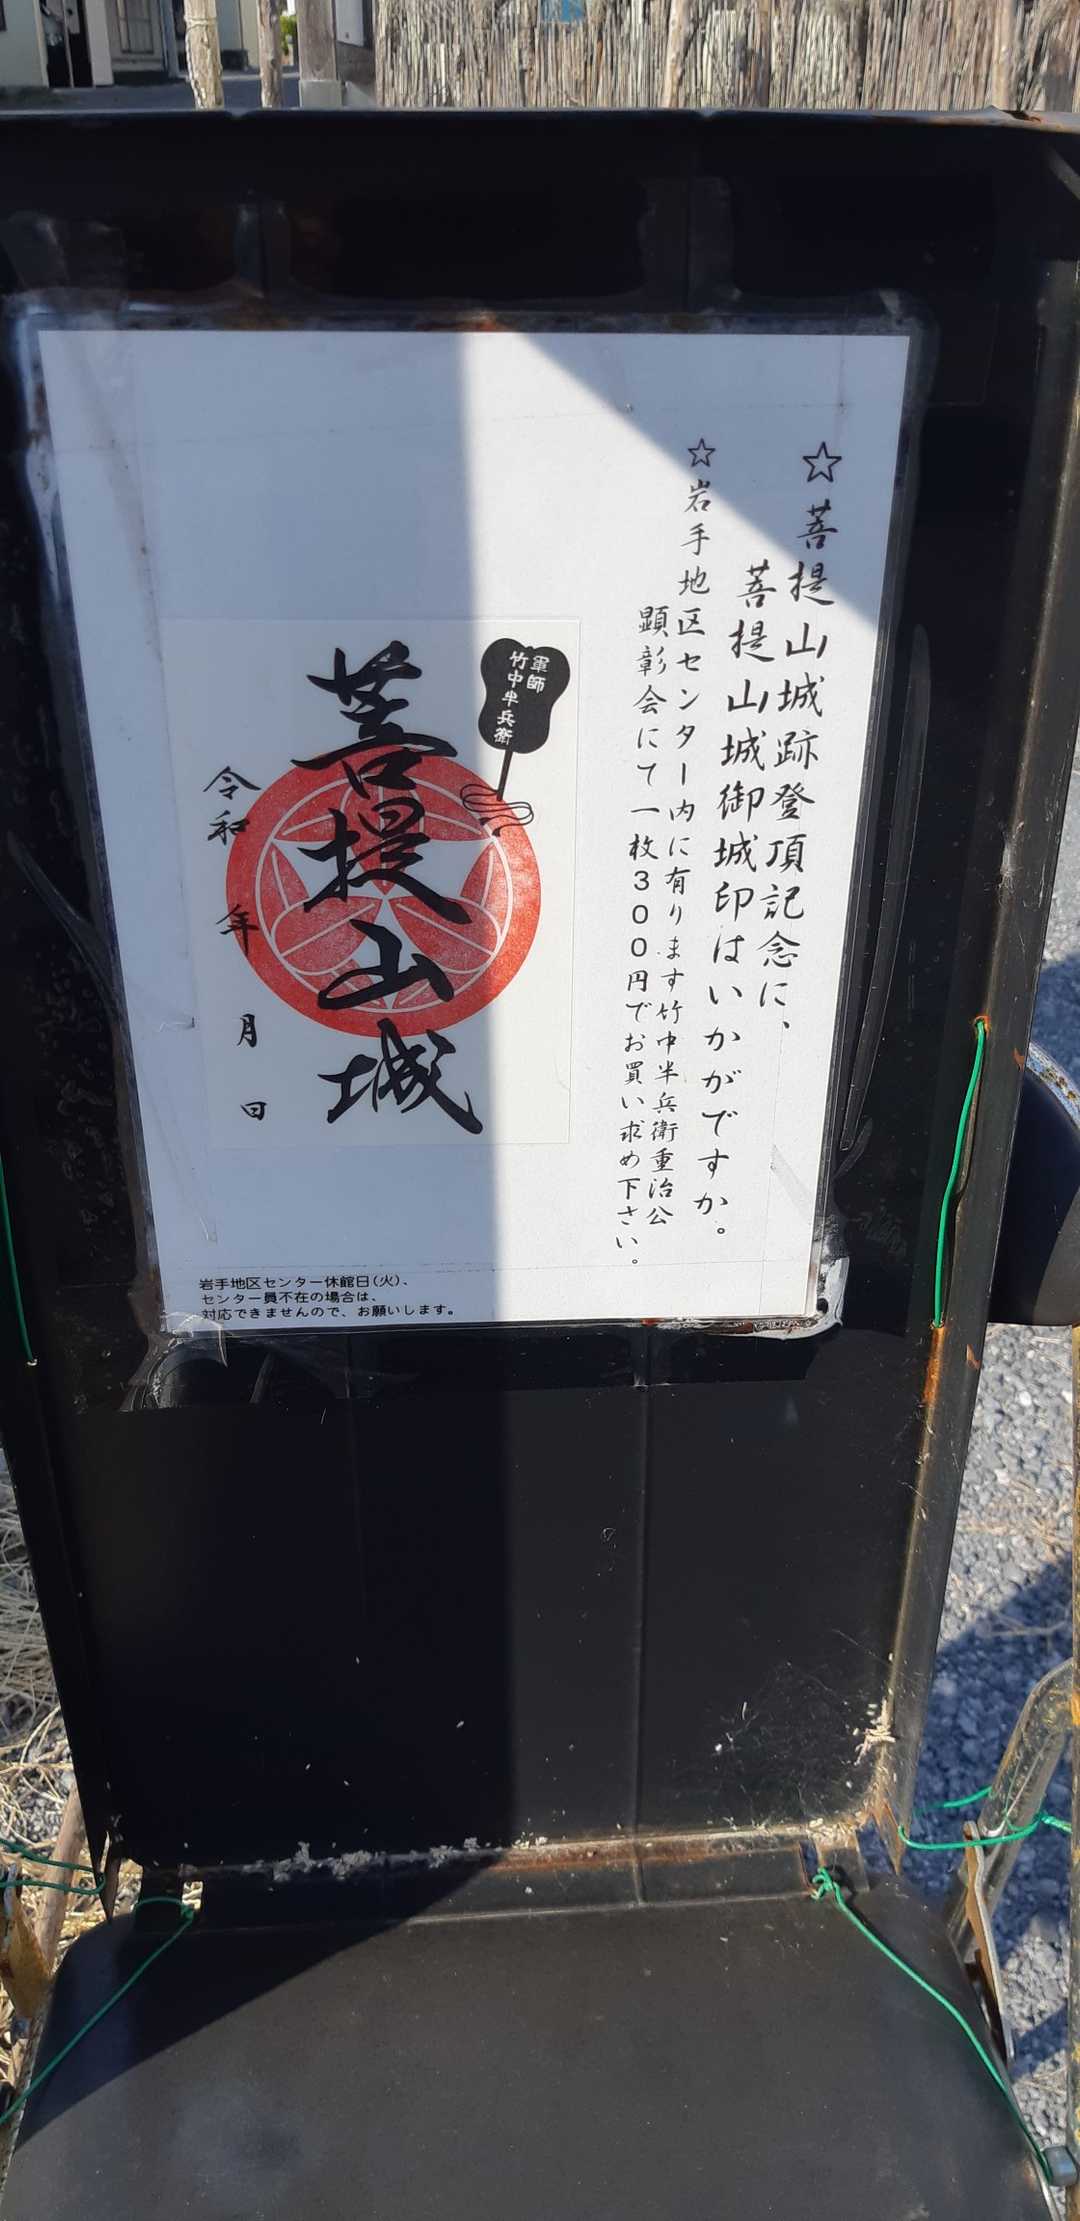 ☆菩提山城跡登頂記念に、
菩提山城御城印はいかがですか。
☆岩手地区センター内に有ります竹中半兵衛重治公
顕彰会にて一枚300円でお買い求め下さい。
軍師
竹中半兵衛
菩提山城
令和 年 月 日
岩手地区センター休館日(火)、
センター員不在の場合は、
対応できませんので、お願いします。